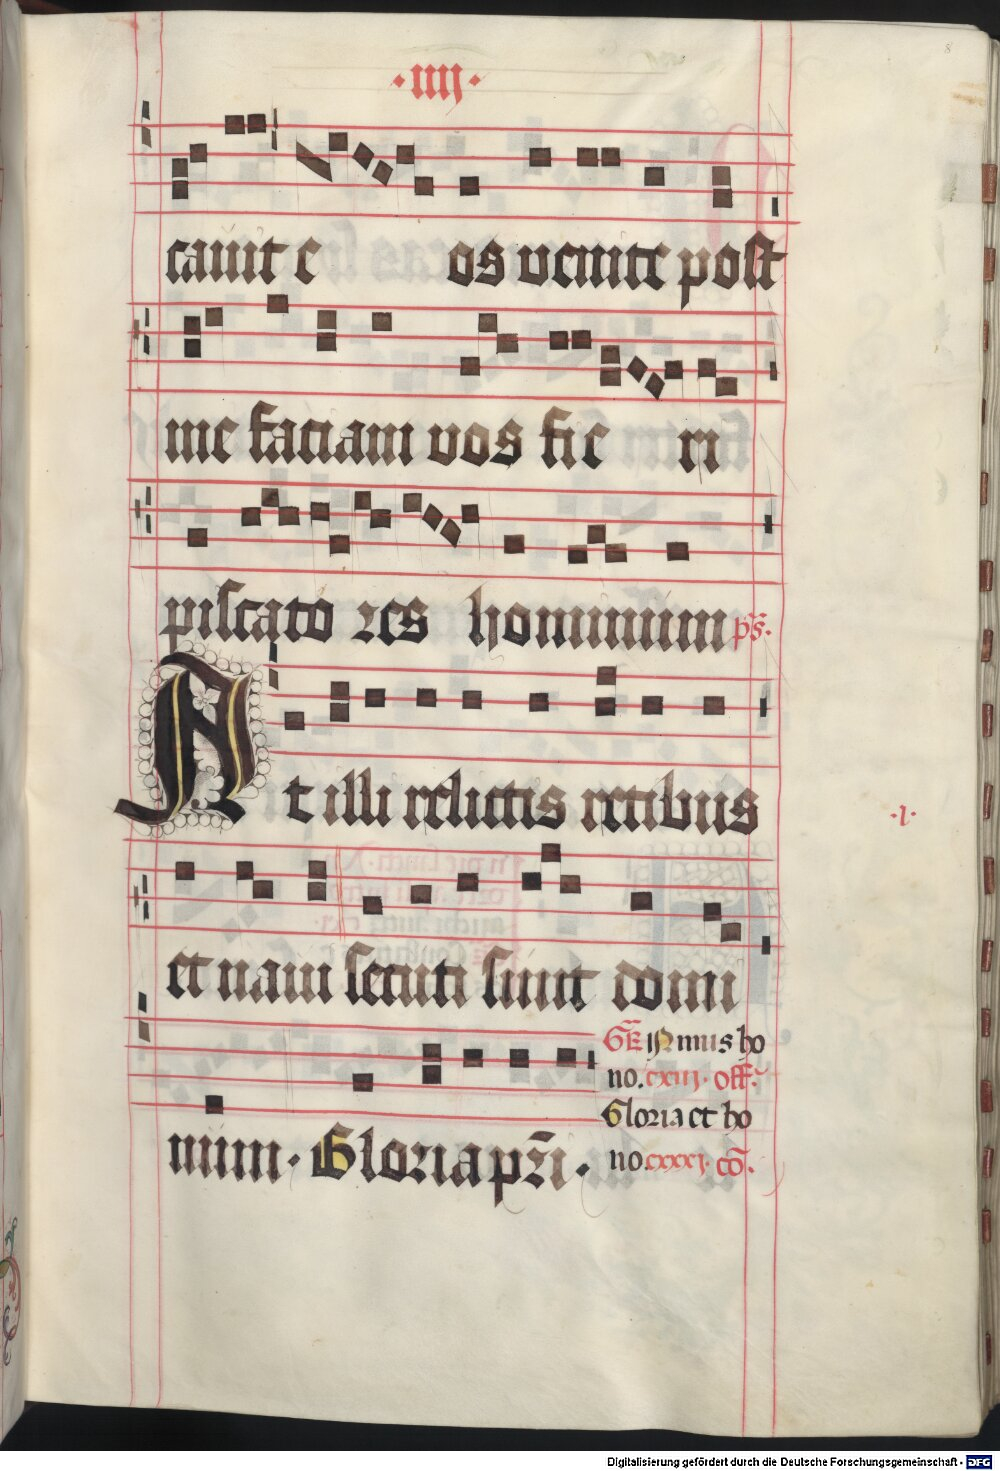 ·iiij·
8
cauit e os uenite post
me faciam uos fie ri
piscato res hominum p̄s.
At illi relictis retibus
·l·
et naui secuti sunt domi
num. Gloria pri̅.
Nimus ho
no. cxiij. off.
Gloria et ho
no. cxxxj. cō.
Digitalisierung gefördert durch die Deutsche Forschungsgemeinschaft - DFG